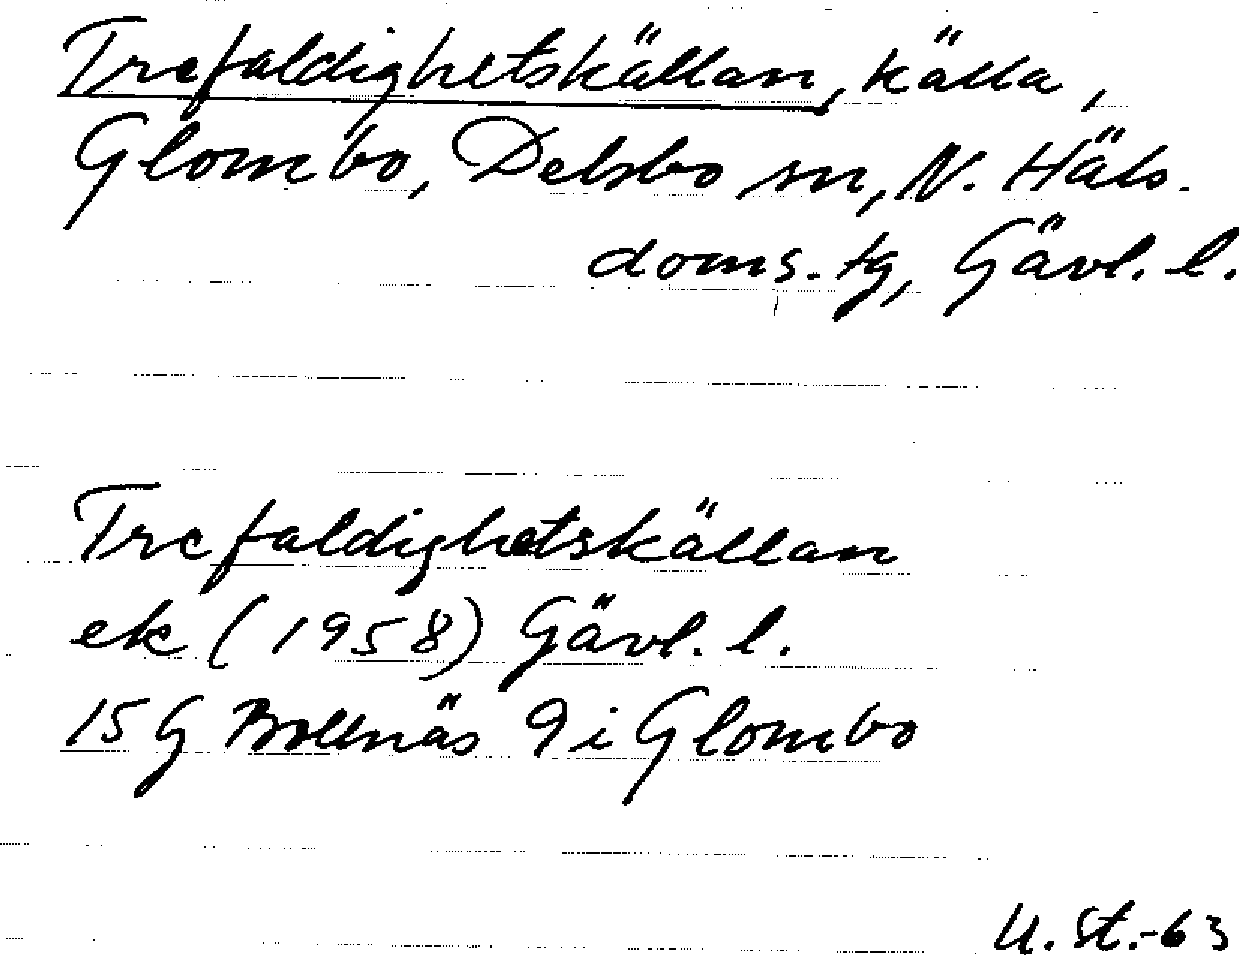 Trefaldighetskällan, källa,
Glombo, Delsbo sn, N. Häls.
doms. tg, Gävl. l.
Trefaldighetskällan
ek (1958) Gävl. l.
15 G Bollnäs 9 i Glombo
U. St.-63